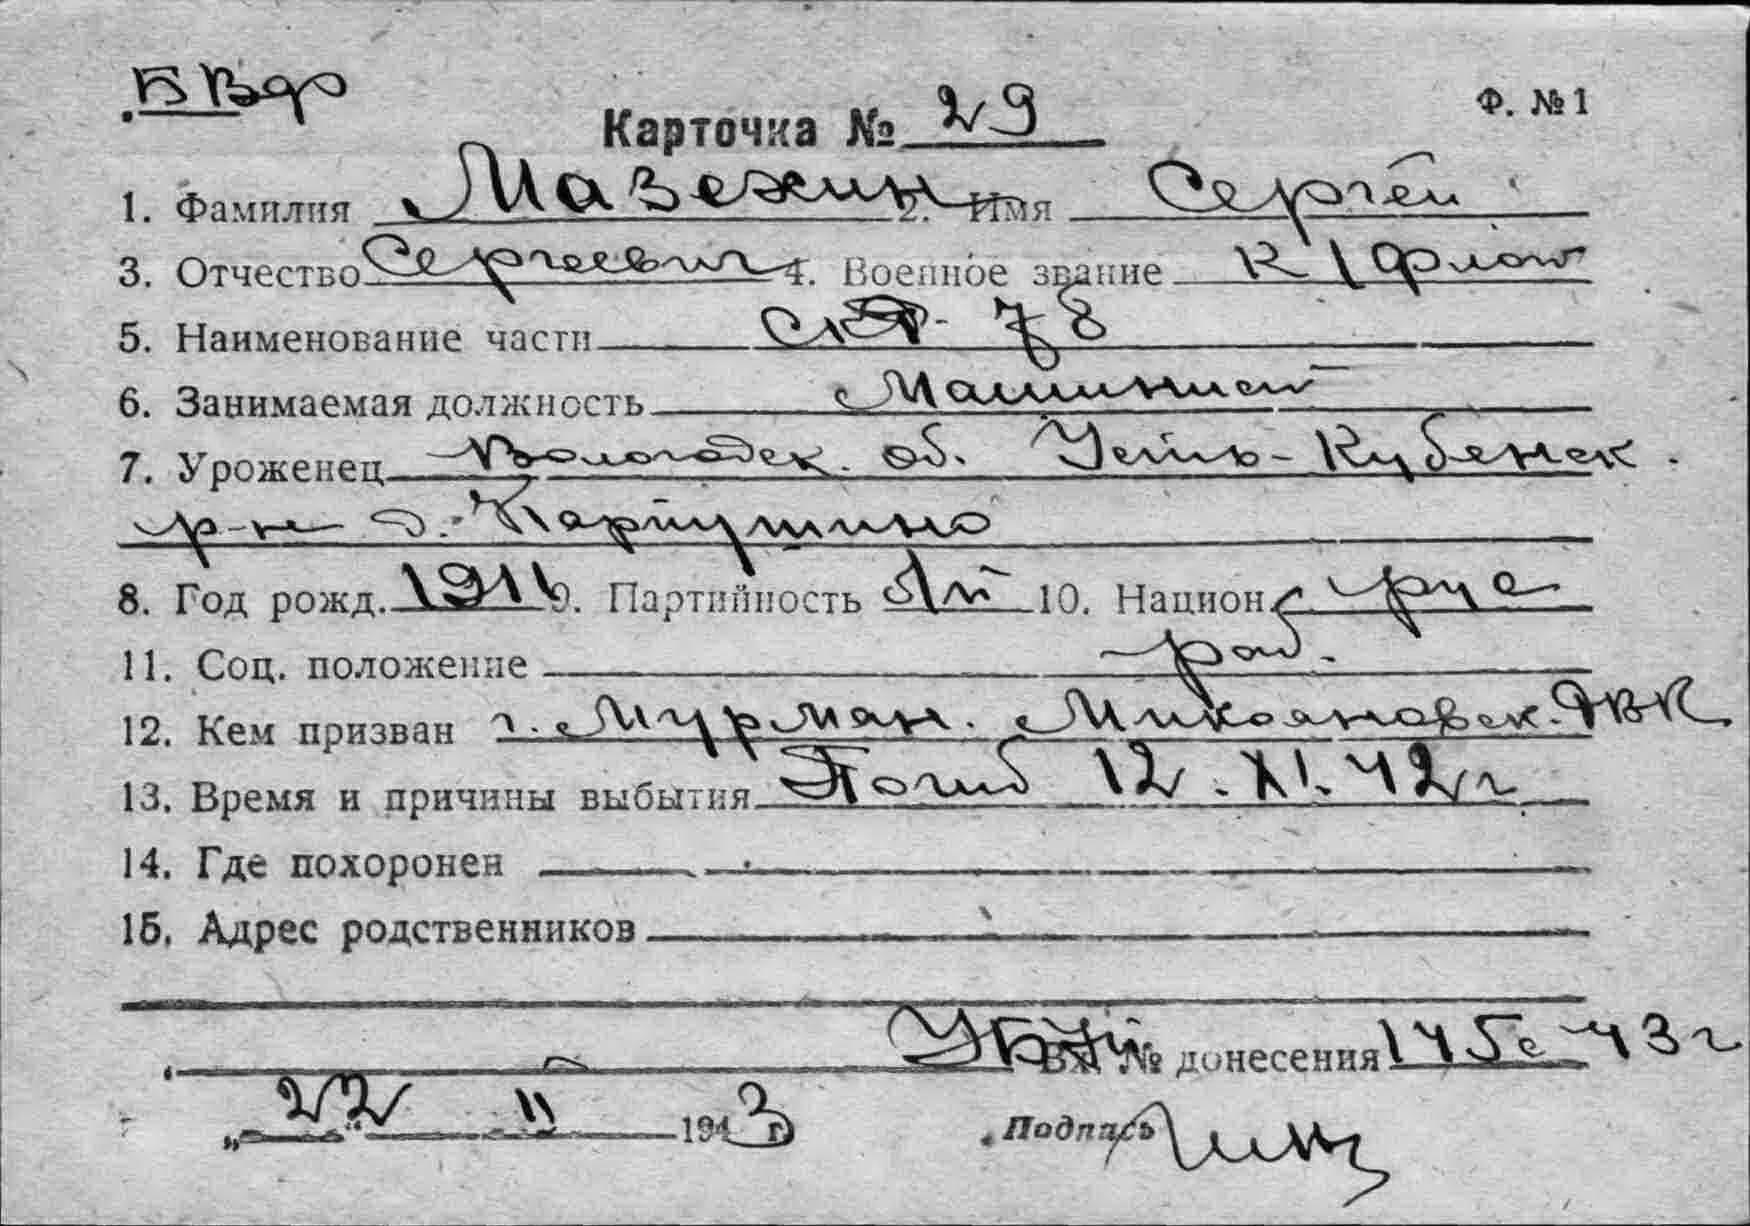 БВф
Карточка № 29 Ф. №1
1. Фамилия Мазехин 2. Имя Сергей
3. Отчество Сергеевич 4. Военное звание К/флот
5. Наименование части СКР-78
6. Занимаемая должность Машинист
7. Уроженец Вологодск. об. Усть-Кубенск.
р-не д. Карпушино
8. Год рожд. 1911 9. Партийность 10. Национ. рус
11. Соц. положение раб.
12. Кем призван г. Мурман. Микояновск. РВК
13. Время и причины выбытия Погиб 12.XI.42г
14. Где похоронен
15. Адрес родственников
Вх № донесения 145с 43г
„22“ II 1943 г.
Подпись